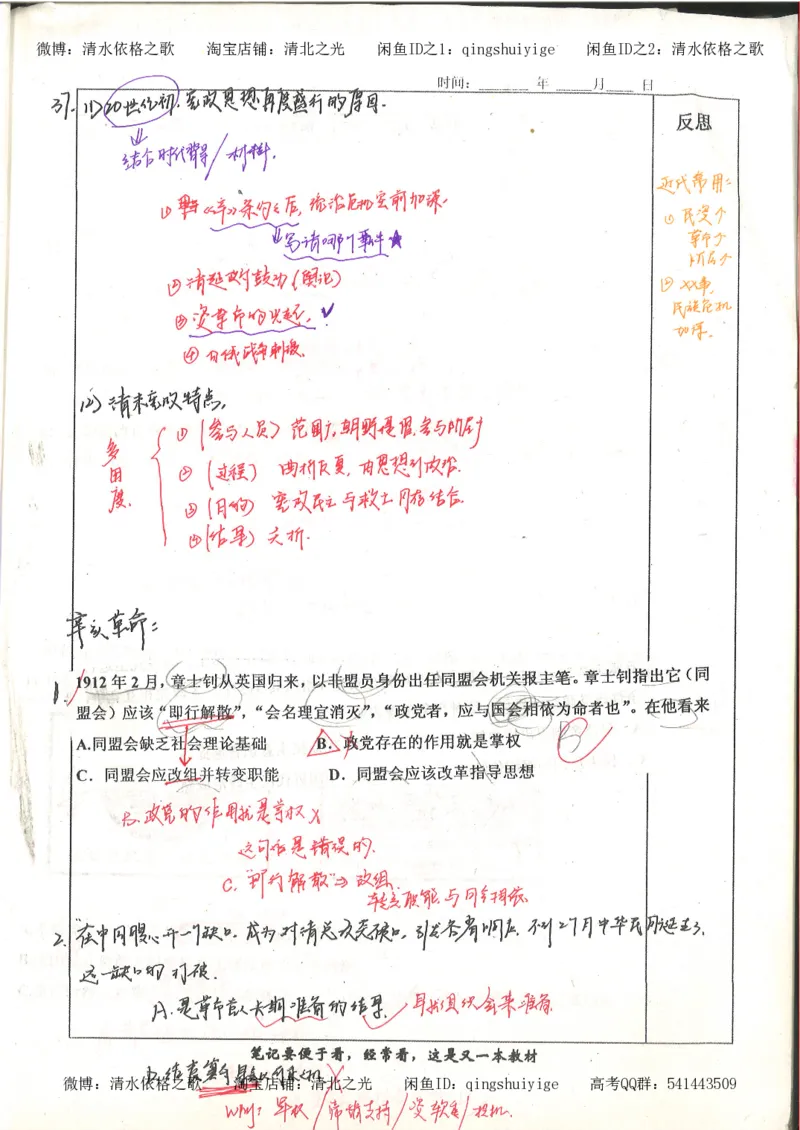 微博：清水依格之歌 淘宝店铺：清北之光 闲鱼ID之1：qingshuiyige 闲鱼ID之2：清水依格之歌
时间：______ 年 ____月____ 日
反思
37. (1) 20世纪初，宪政思想再度盛行的原因.
结合时代背景/材料.
① 《辛》条约后，统治危机空前加深.
写清哪个事件★
② 清廷政府鼓动（舆论）
③ 资革命的兴起. ✓
④ 日俄战争刺激.
近代常用：
① 民资个
革命个
阶层个
② 战争,
民族危机
加深.
(2) 清末宪政特点.
多角度.
① （参与人员）范围广,朝野提倡,参与阶层广
② （过程） 曲折反复，由思想到政治.
③ （目的） 宪政民主与救亡图存结合.
④（结果） 夭折.
辛亥革命：
1. 1912 年 2 月，章士钊从英国归来，以非盟员身份出任同盟会机关报主笔。章士钊指出它（同
盟会）应该“即行解散”，“会名理宜消灭”，“政党者，应与国会相依为命者也”。在他看来
A.同盟会缺乏社会理论基础 B．政党存在的作用就是掌权 B
C．同盟会应改组并转变职能 D．同盟会应该改革指导思想
B. 政党的作用就是掌权 X
这句话是错误的.
C. “即行解散”→改组
转变职能 与国会相依.
2. “在中国腹心开一个缺口，成为对清总攻突破口，引发各省响应，不到2个月中华民国建立了.
这一缺口的打破.
A. 是革命党人长期准备的结果
笔记要便于看，经常看，这是又一本教材
微博：清水依格之歌 淘宝店铺：清北之光 闲鱼ID：qingshuiyige 高考QQ群：541443509